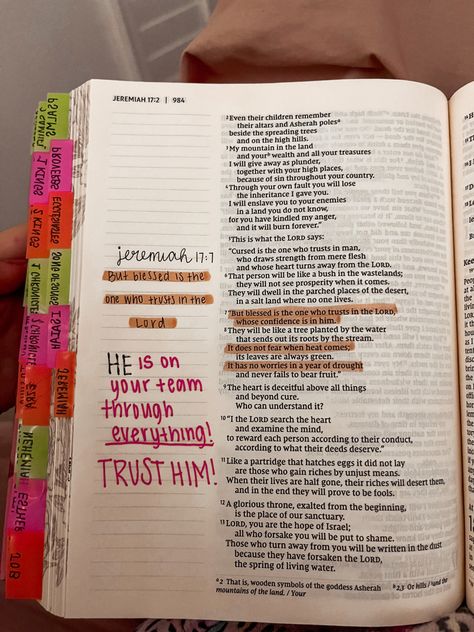 JEREMIAH 17:2 | 984
PSALMS
PROVERBS
ECCLESIASTES
ISAIAH
JEREMIAH
1 KINGS
2 KINGS
1 CHRONICLES
2 CHRONICLES
EZRA
NEHEMIAH
ESTHER
JOB
jeremiah 17:7
But blessed is the
one who trusts in the
Lord
HE is on
your team
through
everything!
TRUST HIM!
2 Even their children remember
their altars and Asherah poles a
beside the spreading trees
and on the high hills.
3 My mountain in the land
and your b wealth and all your treasures
I will give away as plunder,
together with your high places,
because of sin throughout your country.
4 Through your own fault you will lose
the inheritance I gave you.
I will enslave you to your enemies
in a land you do not know,
for you have kindled my anger,
and it will burn forever."
5 This is what the LORD says:
"Cursed is the one who trusts in man,
who draws strength from mere flesh
and whose heart turns away from the LORD.
6 That person will be like a bush in the wastelands;
they will not see prosperity when it comes.
They will dwell in the parched places of the desert,
in a salt land where no one lives.
7 "But blessed is the one who trusts in the LORD,
whose confidence is in him.
8 They will be like a tree planted by the water
that sends out its roots by the stream.
It does not fear when heat comes;
its leaves are always green.
It has no worries in a year of drought
and never fails to bear fruit."
9 The heart is deceitful above all things
and beyond cure.
Who can understand it?
10 "I the LORD search the heart
and examine the mind,
to reward each person according to their conduct,
according to what their deeds deserve."
11 Like a partridge that hatches eggs it did not lay
are those who gain riches by unjust means.
When their lives are half gone, their riches will desert them,
and in the end they will prove to be fools.
12 A glorious throne, exalted from the beginning,
is the place of our sanctuary.
13 LORD, you are the hope of Israel;
all who forsake you will be put to shame.
Those who turn away from you will be written in the dust
because they have forsaken the LORD,
the spring of living water.
a 2 That is, wooden symbols of the goddess Asherah b 2,3 Or hills / 3 and the
mountains of the land. / Your